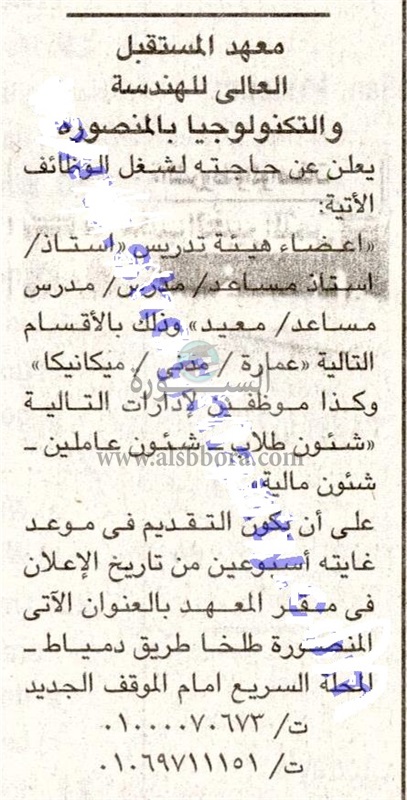 معهد المستقبل
العالى للهندسة
والتكنولوجيا بالمنصوره
يعلن عن حاجته لشغل الوظائف
الأتية:
«اعضاء هيئة تدريس «استاذ/
استاذ مساعد/ مدرس/ مدرس
مساعد/ معيد» وذلك بالأقسام
التالية «عمارة / مدنى / ميكانيكا»
السبورة
وكذا موظفين لإدارات التالية
«شئون طلاب ـ شئون عاملين ـ
www.alsbbora.com
شئون مالية»
على أن يكون التقديم فى موعد
غايته أسبوعين من تاريخ الإعلان
فى مقر المعهد بالعنوان الآتى
المنصورة طلخا طريق دمياط ـ
المحلة السريع امام الموقف الجديد
ت/ ٠١٠٠٠٠٧٠٦٧٣
ت/ ٠١٠٦٩٧١١١٥١